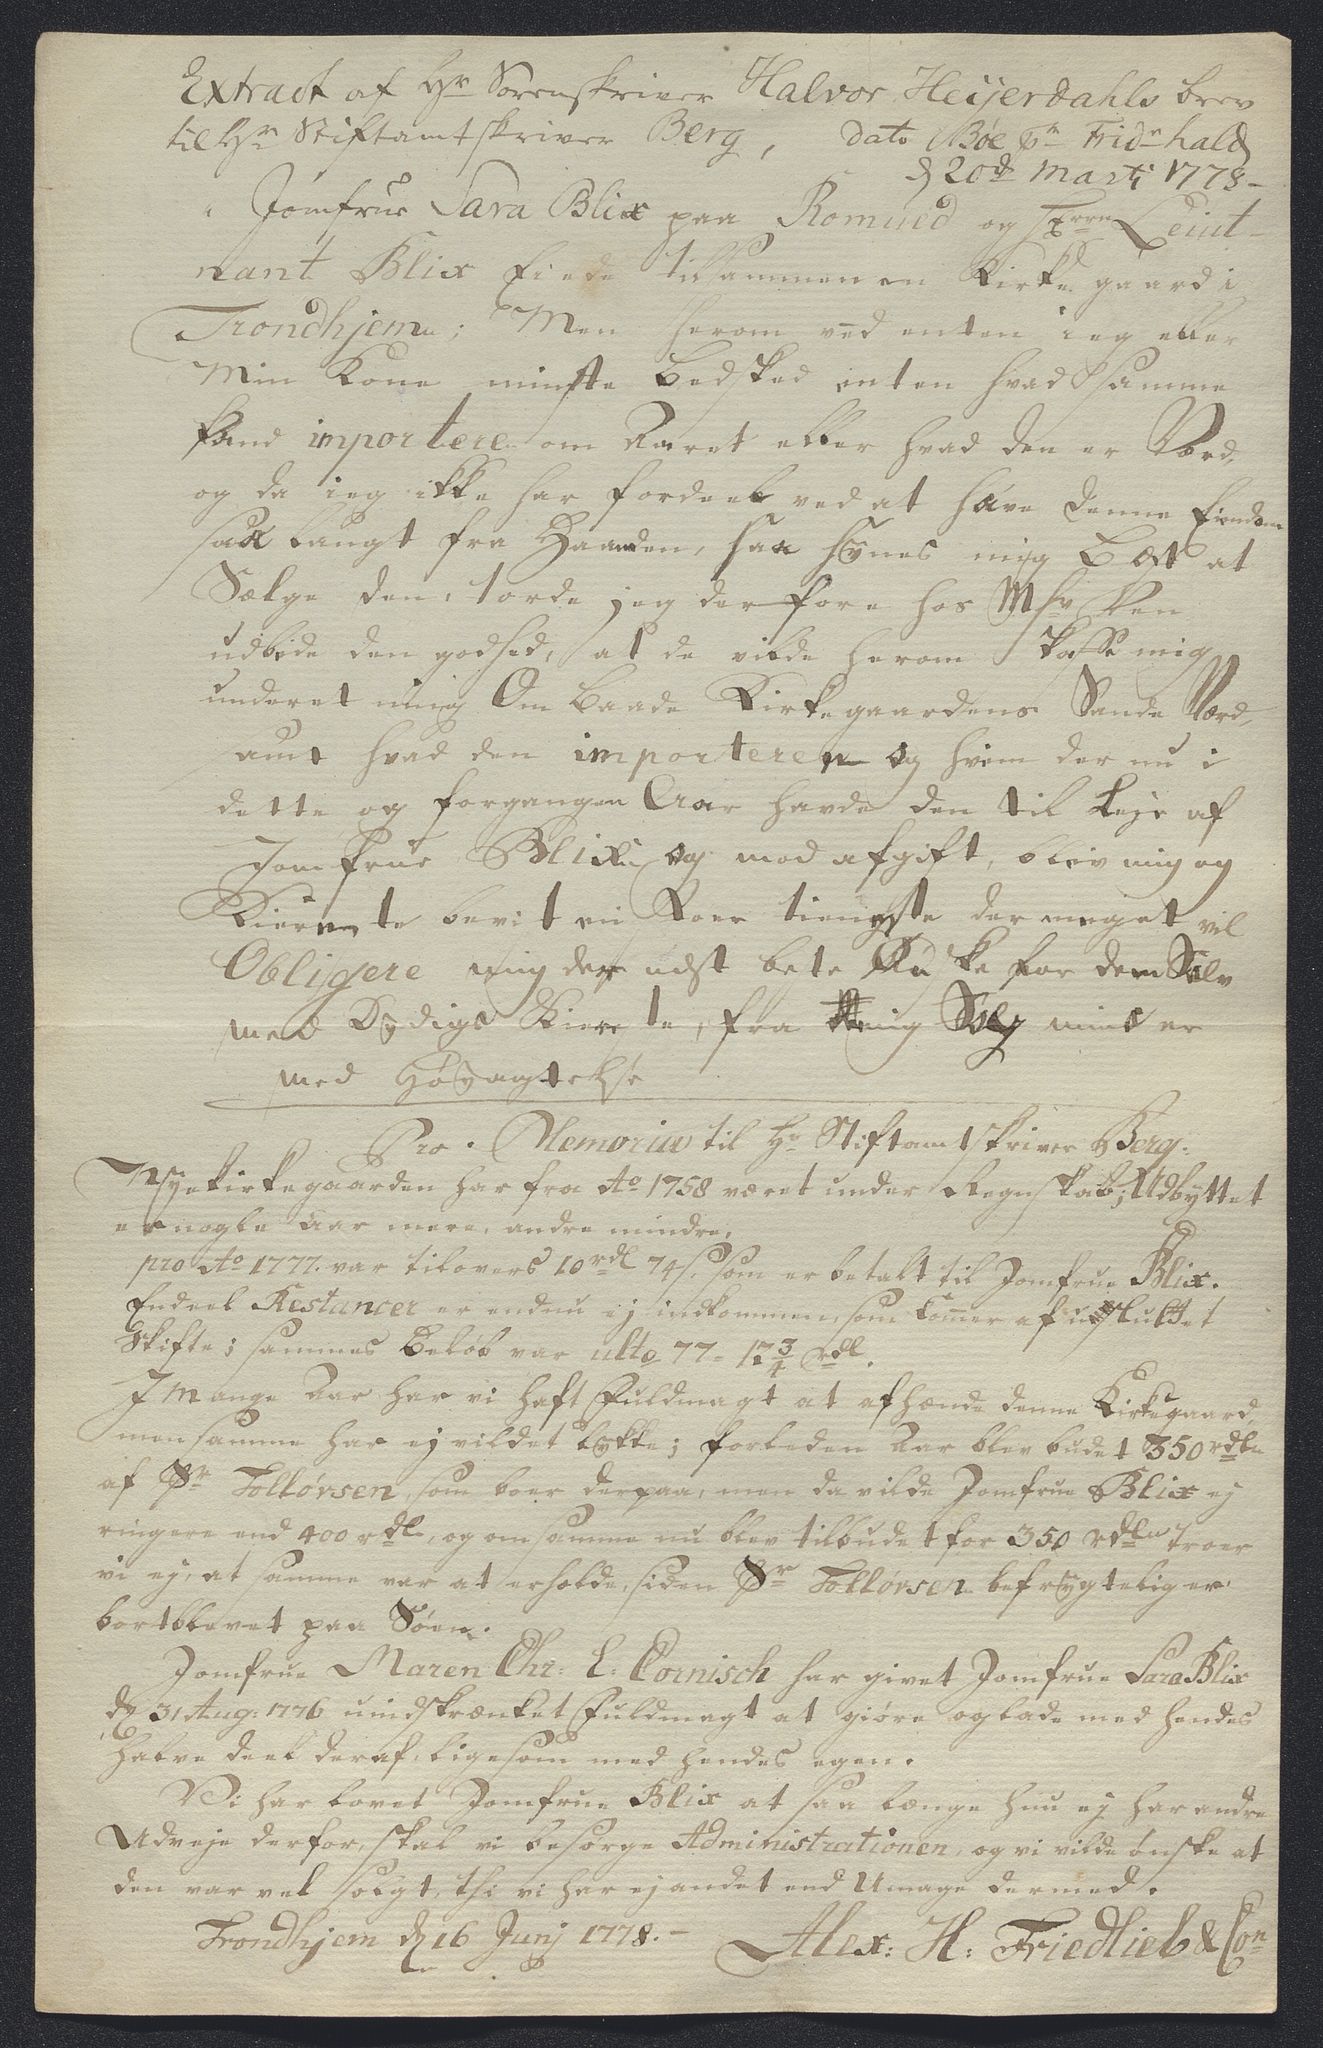 Extract af Hr Sorenskriver Halvor Heijerdahls brev
til Hr Stiftamtskriver Berg, dato Bøe pr Fridrhald
d 20de Marti 1778 -
Jomfrue Sara Blix paa Romued og Leiut-
nant Blix Eiede tilsammen en Kirkegaard i
Trondhjem; Men herom ved enten ieg eller
Min Kone minste beskeed enten hvad samme
kand importere om Aaret eller hvad den er Værd,
og da ieg ikke har fordeel ved at have denne Eiendom
saa langt fra Haanden, saa synes mig Best at
Sælge den, torde jeg derfore hos Msr
udbede den godhed, at de vilde herom mig
underet mig Om baade Kirkegaardens Sande Værd,
samt hvad den importerer og hvem der nu i
dette og forgangen Aar havde den til Leje af
Jomfrue Blix og mod afgift, blev mig og
Kiereste beviist en stoer tieneste der meget vil
Obligere mig der udst beste for dem Selv
med Dydige Kiereste, fra mig Selv er
med Høyagtelse
Pro Memoria til Hr Stiftamtskriver Berg.
Nyekirkegaarden har fra Ao 1758 været under Regnskab; Udbyttet
er nogle Aar mere, andre mindre.
pro Ao 1777 var tilovers 10 rdl 74 s. som er betalt til Jomfrue Blix.
Endeel Restancer er endnu ej indkommen, som kommer af uslutted
Skifte; sammes Beløb var ulto 77 = 12 3/4 rdl.
I Mange Aar har vi haft Fuldmagt at afhænde denne Kirkegaard,
men samme har ej vildet lykke; forleden Aar blev budet 350 rdlr
af Sr Tollørsen, som boer derpaa, men da vilde Jomfrue Blix ej
ringere end 400 rdl, og om samme nu blev tilbudet for 350 rdlr troer
vi ej, at samme var at erholde, siden Sr Tollørsen befrygtelig er
bortblevet paa Søen.
Jomfrue Maren Chr: L: Cornisch har givet Jomfrue Sara Blix
d 31 Aug: 1776 uindskrænket Fuldmagt at giøre og lade med hendes
halve deel deraf, ligesom med hendes egen.
Vi har lovet Jomfrue Blix at saa længe hun ej har andre
Udveje derfor, skal vi besørge Administrationen, og vi vilde ønske at
den var vel solgt, thi vi har ej andet end Umage dermed.
Trondhjem d 16 Junj 1778. - Alex: H: Friedlieb & Con